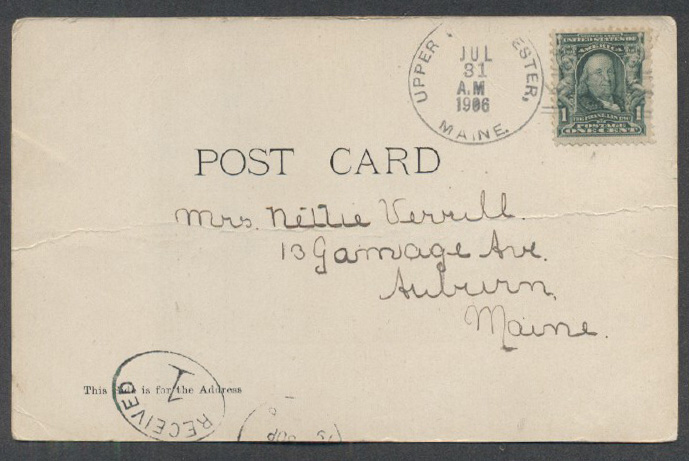 UPPER ESTER,
JUL
31
A.M
1906
MAINE.
UNITED STATES OF
AMERICA
1 1
POSTAGE
ONE CENT
POST CARD
Mrs. Nettie Verrill.
13 Gamage Ave.
Auburn,
Maine.
This side is for the Address
RECEIVED
1